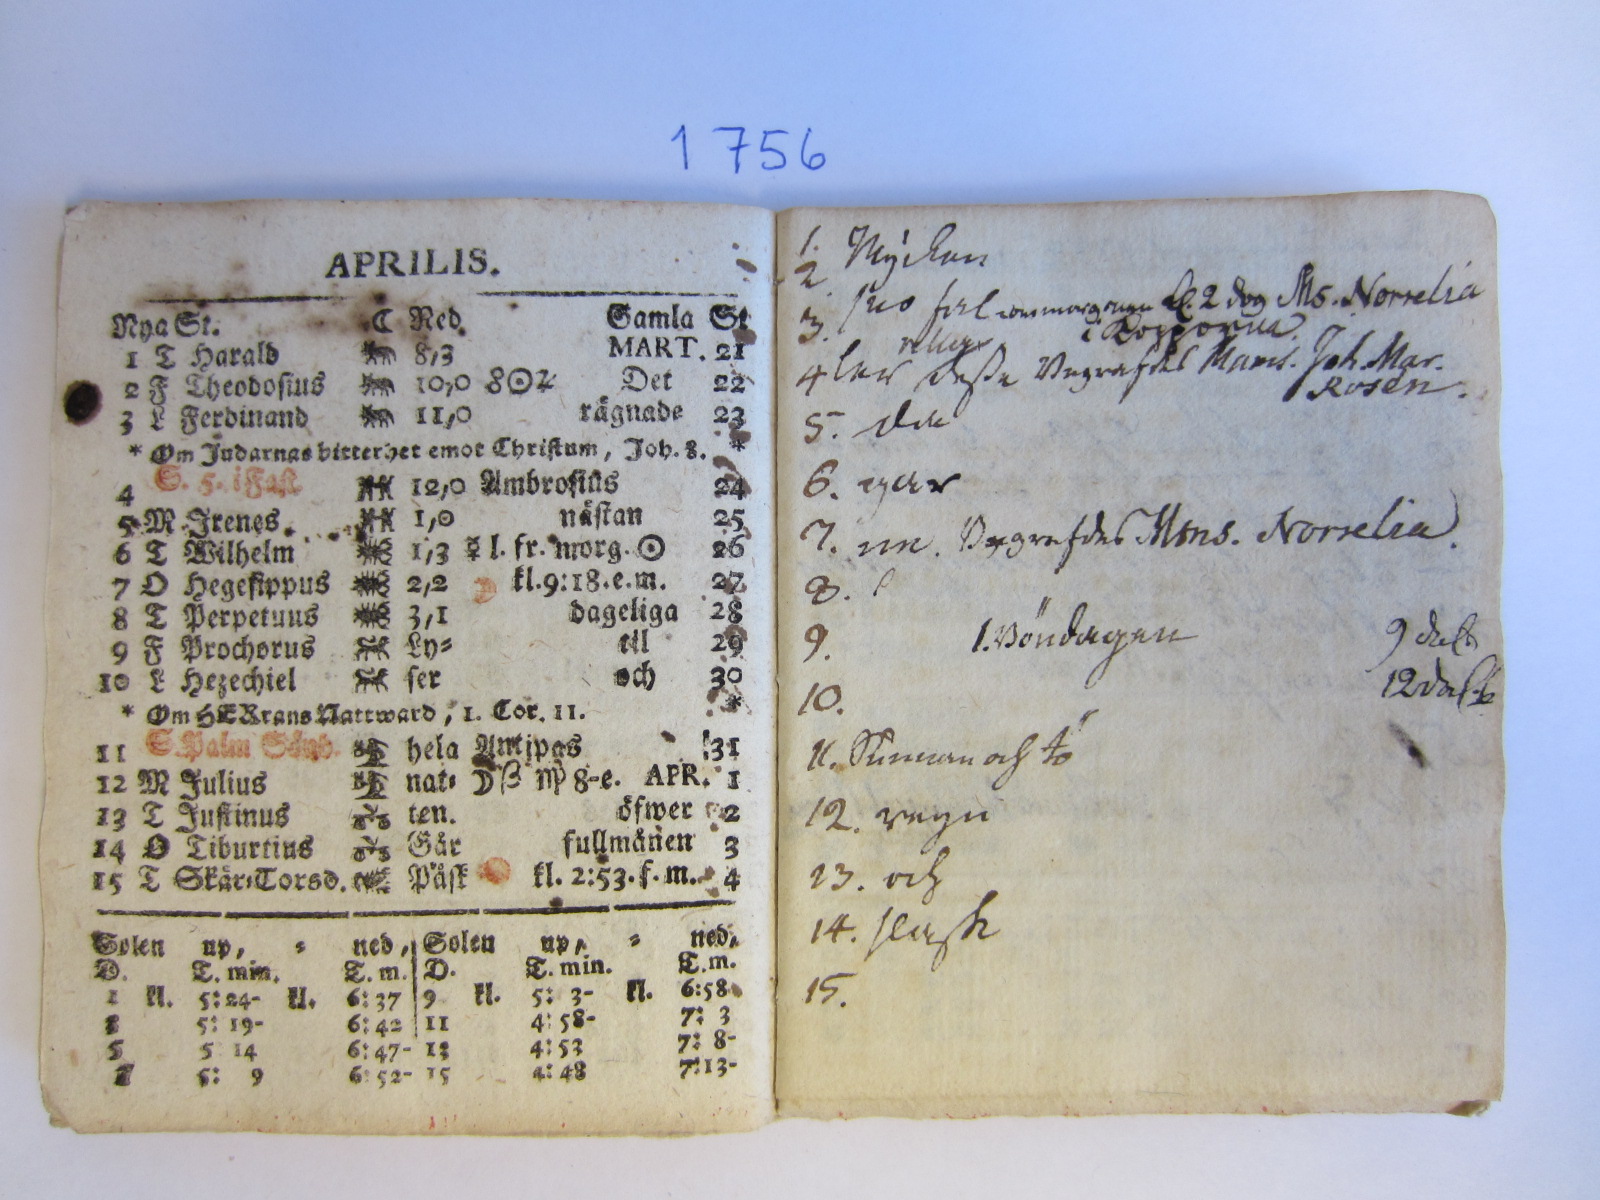 1756
APRILIS.
Nya St. ☾ Red. Gamla St
1 T Harald 8,3 MART. 21
2 F Theodosius 10,0 8☉♃ Det 22
3 L Ferdinand 11,0 rägnade 23
* Om Judarnas bitterhet emot Christum, Joh. 8. *
4 S. 5. i Fast. 12,0 Ambrosius 24
5 M Irenes. 1,0 nästan 25
6 T Wilhelm 1,3 ☿ l. fr. morg. ☉ 26
7 O Hegesippus 2,2 kl.9:18.e.m. 27
8 T Perpetuus 3,1 dageliga 28
9 F Prochorus Ly= til 29
10 L Hezechiel ser och 30
* Om HERrans Nattward, 1. Cor. 11. *
11 S. Palm Sönd. hela Antipas 31
12 M Julius nat= 8-e. APR. 1
13 T Justinus ten. öfwer 2
14 O Tiburtius Går fullmånen 3
15 T Skär=Torsd. Påsk kl. 2:53.f.m. 4
Solen up, = ned, Solen up, = ned,
D. T. min. T. m. D. T. min. T. m.
1 kl. 5:24- kl. 6:37 9 kl. 5: 3- kl. 6:58
3 5: 19- 6:42 11 4:58- 7: 3
5 5 14 6:47- 13 4:53 7: 8-
7 5: 9 6:52- 15 4:48 7:13-
1. Mycken
2
snö föl 2 dog Ms. Norrelia
3. i Kopporna
4 desse Begrafdes Mams. Joh. Mar.
Rosén.
5. da
6. gar
7. ne. Begrafdes Mms. Norrelia.
8.
9. 1. Böndagen 9 dal
10. 12 dal
11. Sunnan och tö
12. regn
13. och
14. slask
15.